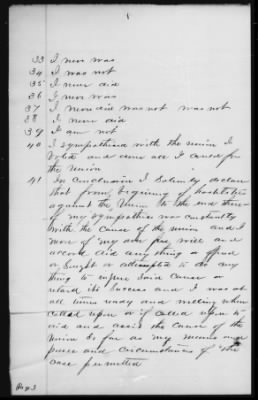 33 I never was
34 I was not
35 I never did
36 I never was
37 I never did was not was not
38 I never did
39 I am not
40 I sympathised with the union I
Voted and over all I cared for
the Union
41 In conclusion I Solemly declare
that from beginning of hostilities
against the Union to the end there
of my sympathies was constantly
with the cause of the union and I
never of my own free will and
accord did any thing or offered
or sought or attempted to do any
thing to injure said cause or
retard its success and I was at
all times ready and willing when
called upon or if called upon to
aid and assist the cause of the
Union so far as my means and
power and circumstances of the
case permitted
Pag 3